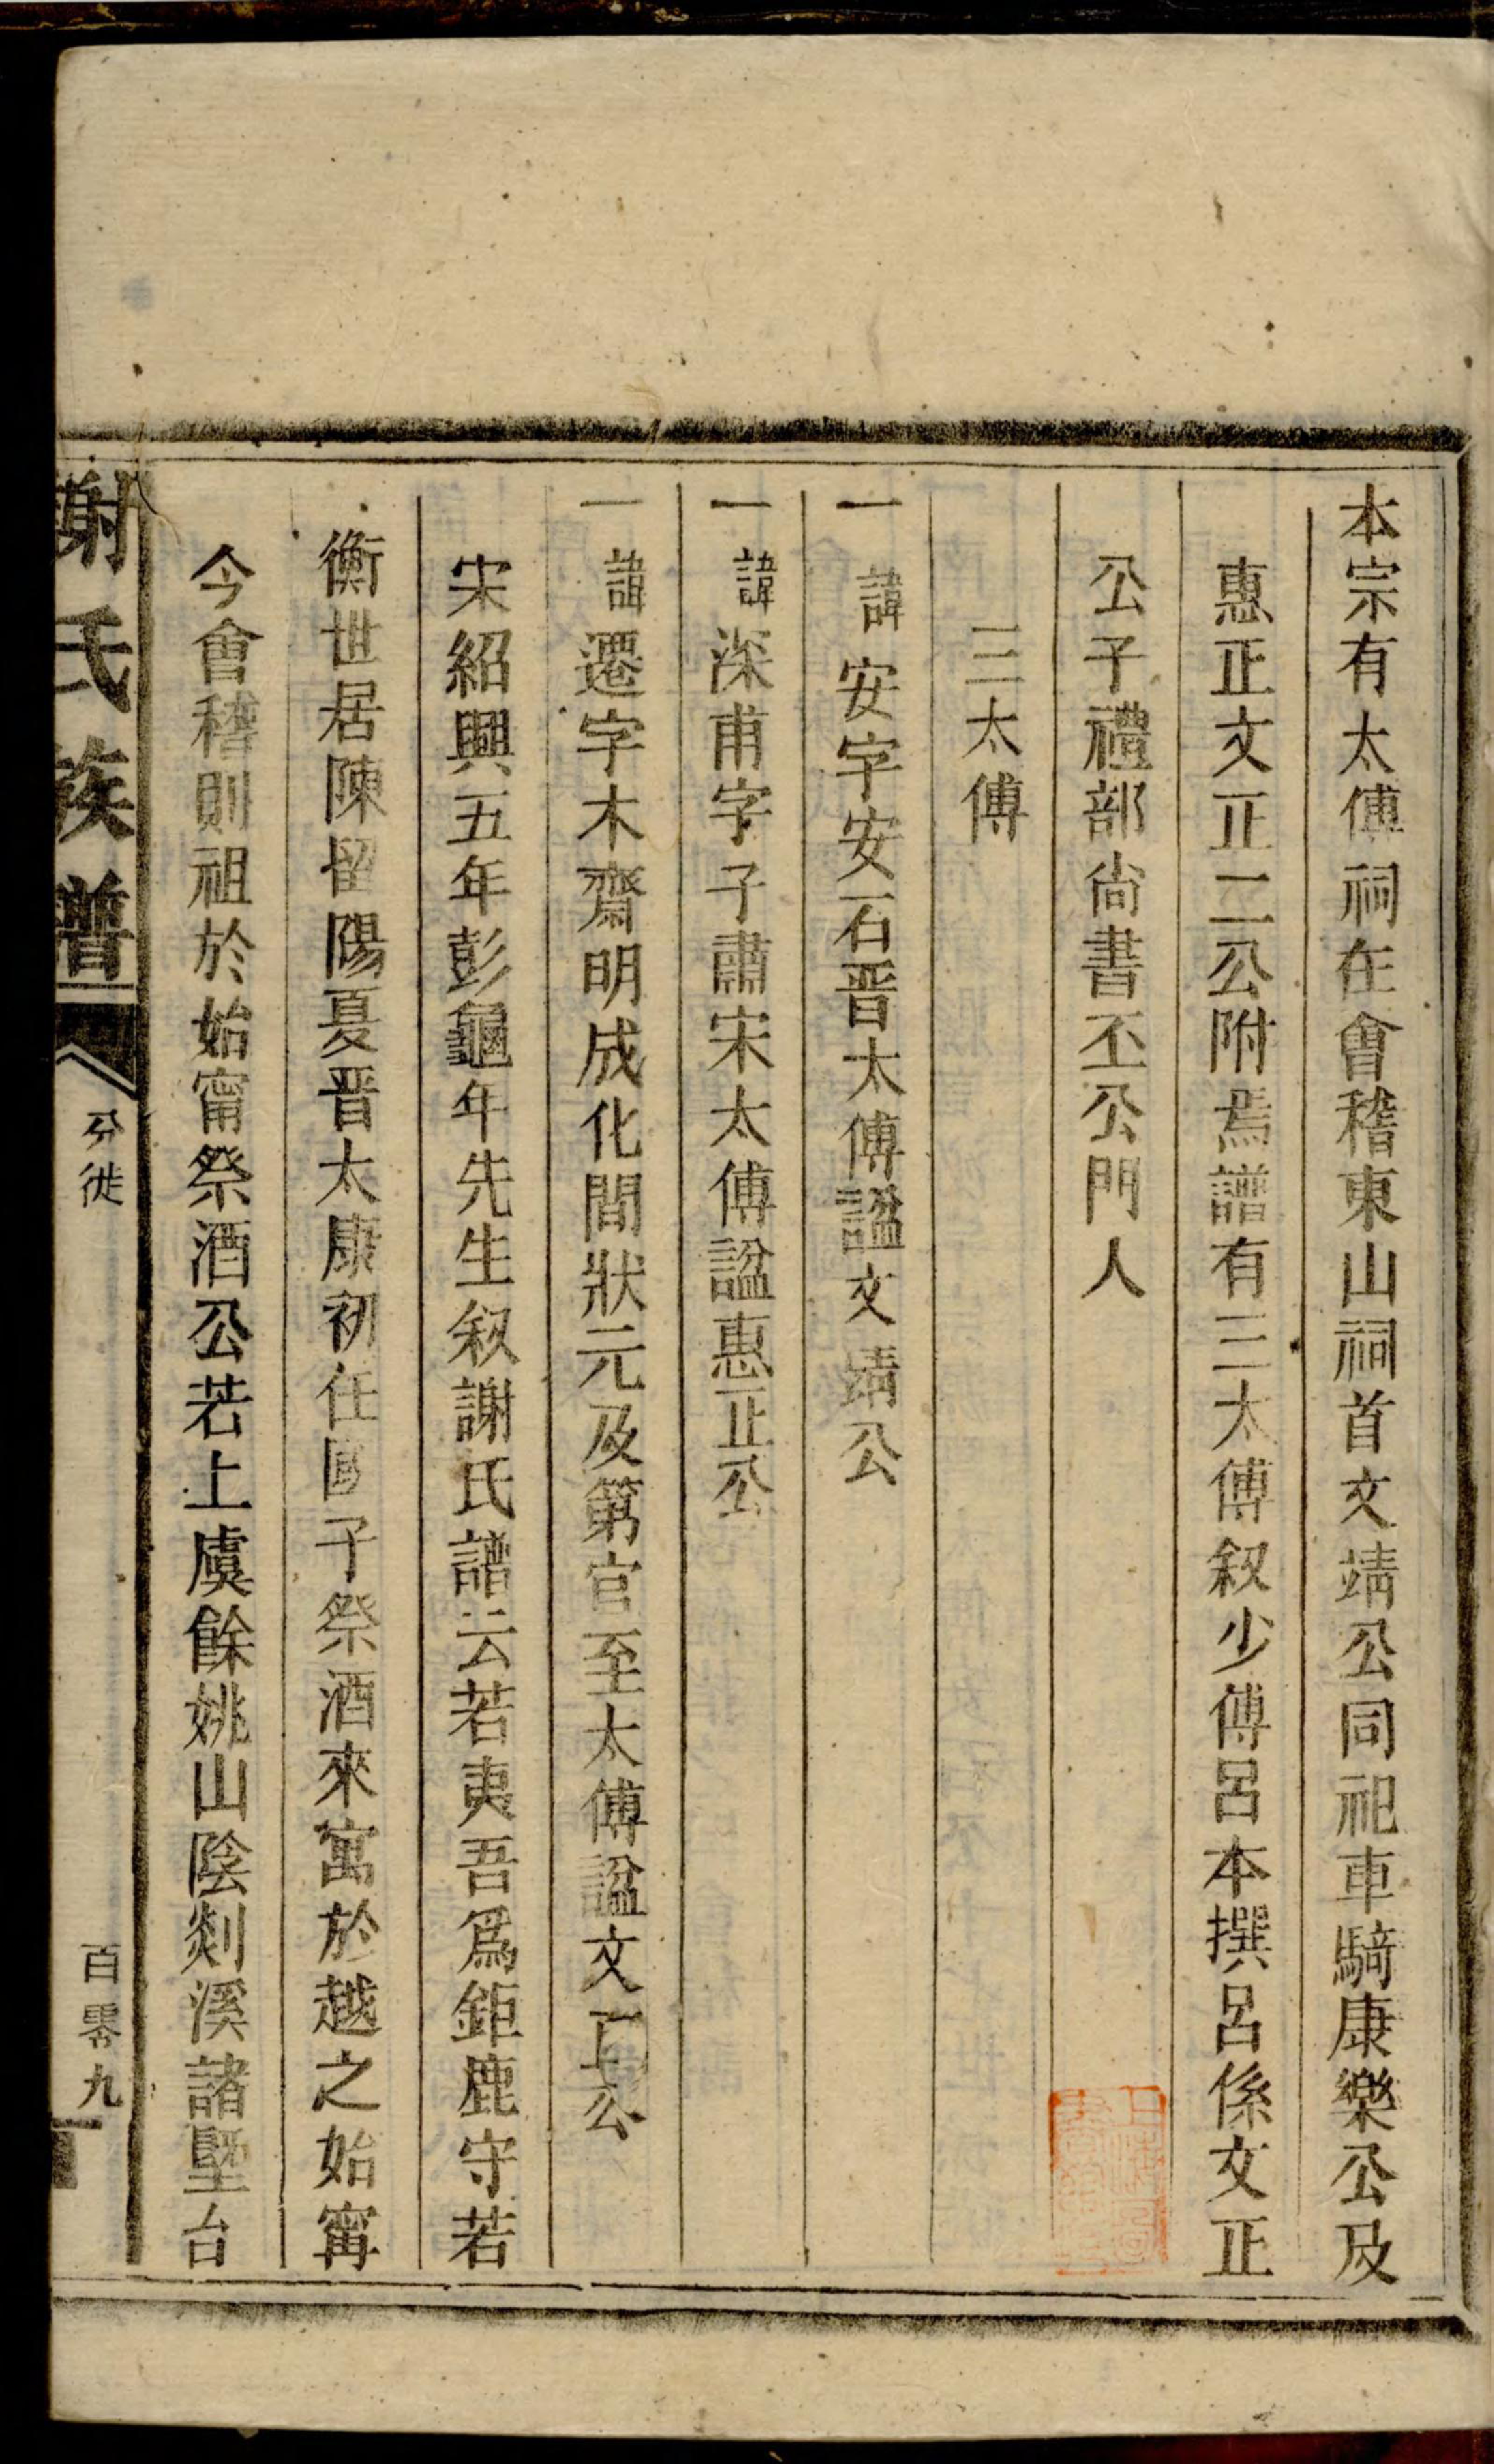 本宗有太傅祠在會稽東山祠首文靖公同祀車騎康樂公及
惠正文正二公附焉譜有三太傅叙少傅呂本撰呂係文正
公子禮部尙書丕公門人
三太傅
一諱安字安石晋太傅諡文靖公
一諱深甫字子肅宋太傅諡惠正公
一諱遷字木齋明成化間狀元及第官至太傅諡文正公
宋紹興五年彭龜年先生叙謝氏譜云若夷吾爲鉅鹿守若
衡世居陳留陽夏晋太康初任國子祭酒來寓於越之始甯
今會稽則祖於始甯祭酒公若上虞餘姚山陰剡溪諸曁台
謝氏族譜
分徙
百零九